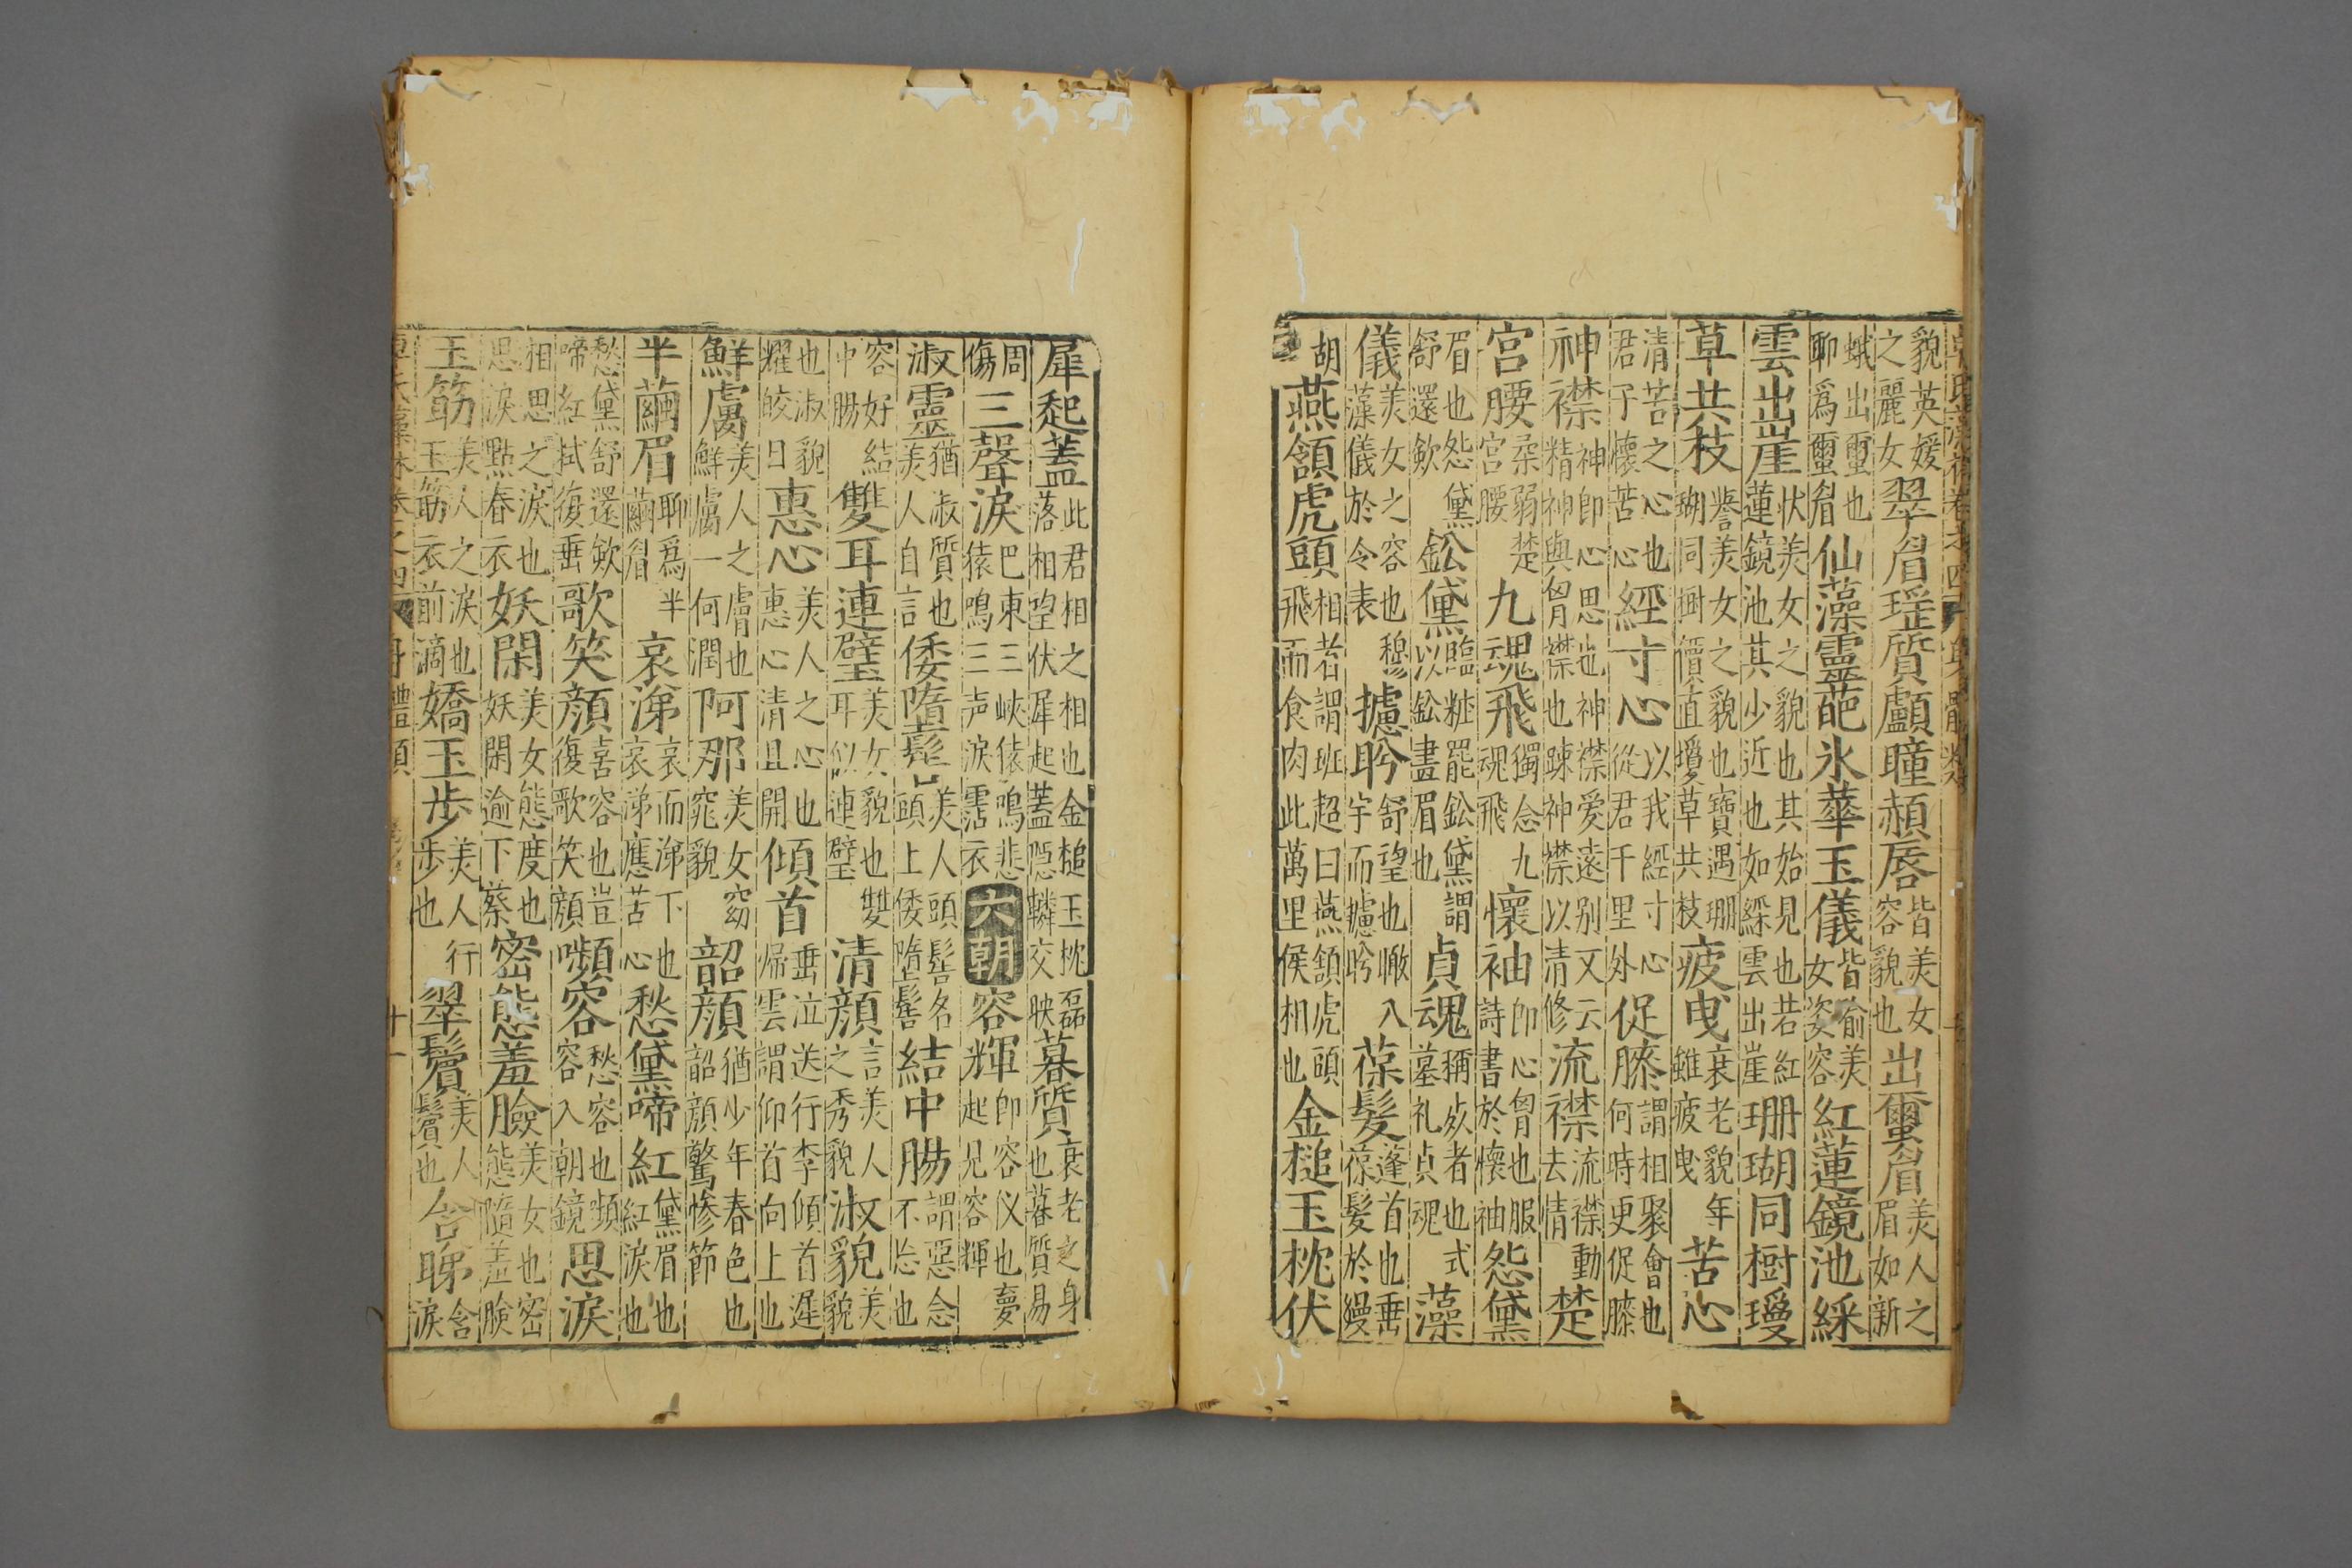 貌英媛之麗女翠眉瑶質顱瞳頳唇皆美女容貌也出蠒眉美人之眉如新
蛾出蠒也聊爲蠒眉仙藻靈葩氷華玉儀皆喻美女姿容紅蓮鏡池綵
雲出崖狀美女之貌也其始見也若紅蓮鏡池其少近也如綵雲出崖珊瑚同樹㻴
草共枝譽美女之貌也寶遇珊瑚同樹價直㻴草共枝疲曳衰老貌年雖疲曳苦心
清苦之心也君子懷苦心經寸心以我經寸心從君千里外促膝謂相聚會也何時更促膝
神襟神即心思也神襟爱遠别又云精神與胷襟也踈神襟以清修流襟流襟動去情楚
宮腰柔弱楚宮腰九魂飛獨念九魂飛懷袖即心胷也服詩書於懷袖怨黛
眉也怨黛舒還歛鈆黛臨粧罷鈆黛謂以鈆畫眉也貞魂稱歿者也式墓礼貞魂藻
儀美女之容也穆藻儀於令表攄盻舒望也瞰八宇而攄盻葆髮蓬首也垂葆髮於縵
胡燕頷虎頭相者謂班超曰燕頷虎頭飛而食肉此萬里侯相也金槌玉枕伏
犀起蓋此君相之相也金槌玉枕磊落相望伏犀起蓋隠轔交映暮質衰老之身也暮質易
周傷三聲淚巴東三峽猿鳴悲猿鳴三声淚霑衣六朝容輝即容仪也夢起見容輝
淑靈猶淑質也美人自言倭隋髻美人頭髻名頭上倭墮髻結中腸謂惡念不忘也
容好結中腸雙耳連璧美女貌也雙耳似連璧清顔言美人之秀貌淑貌美貌
也淑貌耀皎日惠心美人之心也惠心清且開傾首垂泣送行李傾首遲歸雲謂仰首向上也
鮮膚美人之膚也鮮膚一何潤阿那美女窈窕貌韶顔猶少年春色也韶顔驚慘節
半繭眉聊爲半繭眉哀涕哀而涕下也哀涕應苦心愁黛啼紅黛眉也紅淚也
愁黛舒還歛啼紅拭復垂歌笑顔喜容也豈復歌笑顔嚬容愁容也嚬容入朝鏡思淚
相思之淚也思淚點春衣妖閑美女態度也妖閑逾下蔡密態羞臉美女也密態隨羞臉
玉筯美人之淚也玉筯衣前滴嬌玉步美人行步也翠鬢美人鬢也含睇含淚
卓氏藻林卷之四 身體類 十一